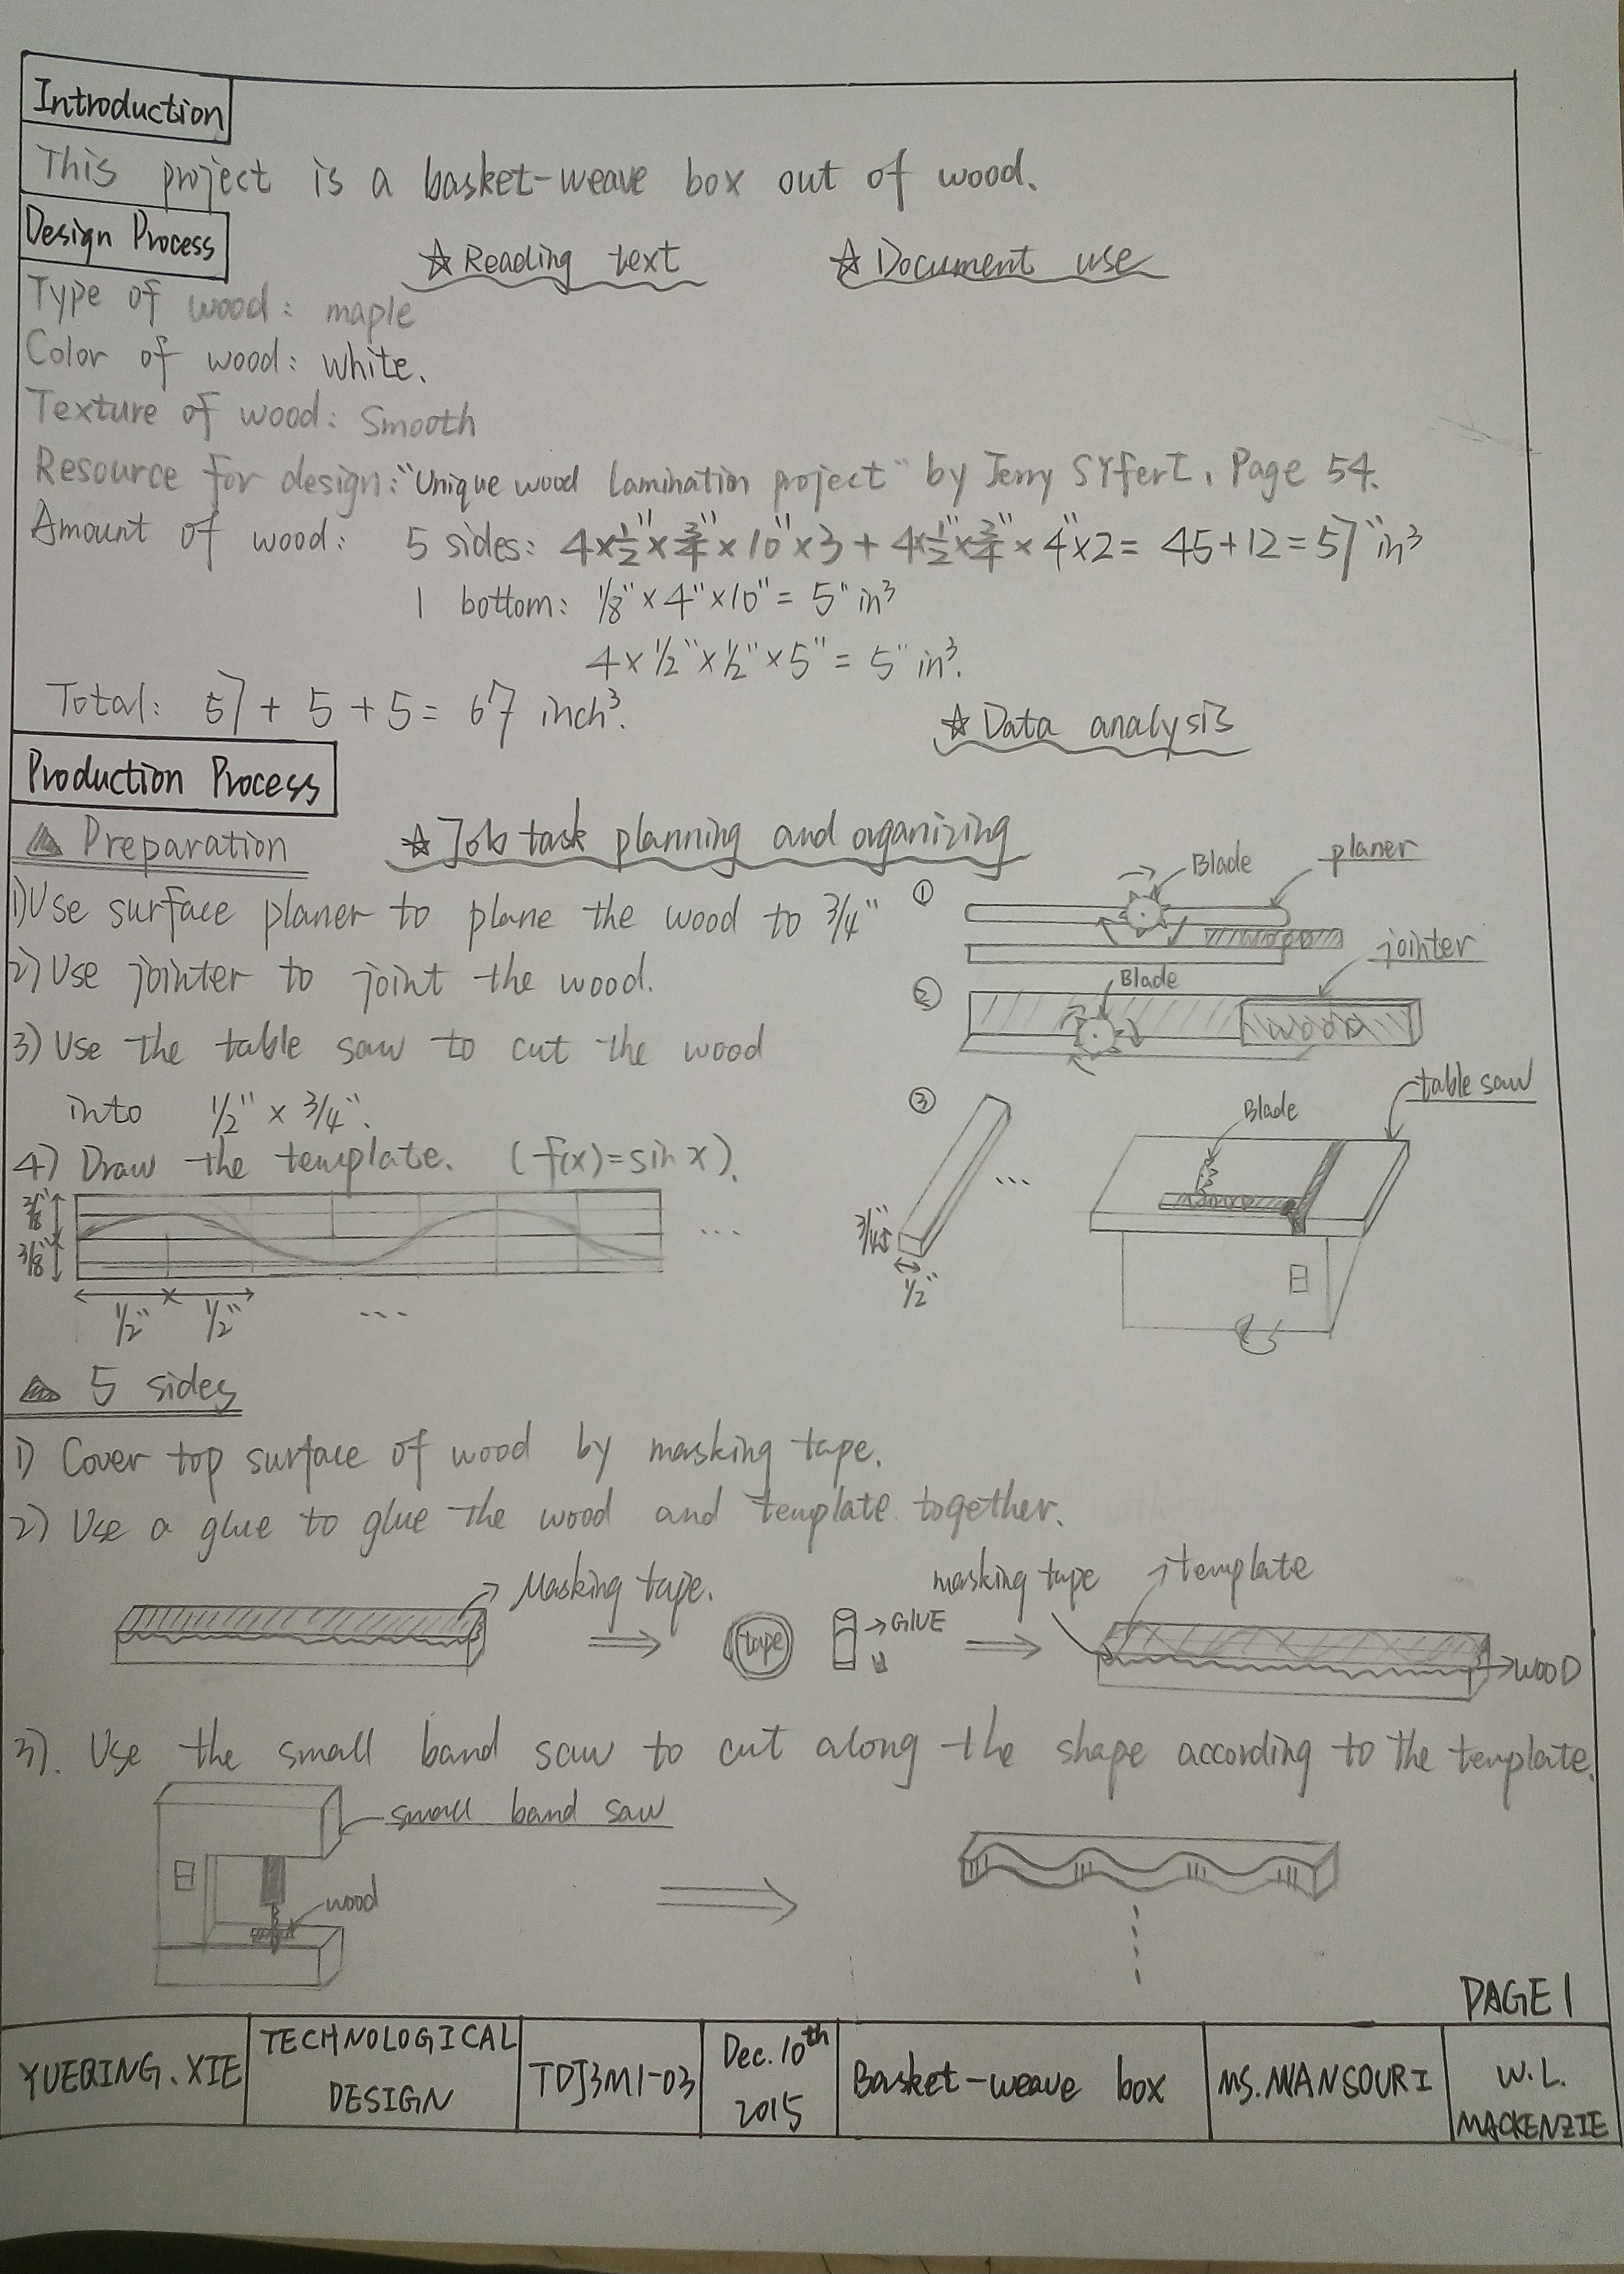 Introduction
This project is a basket-weave box out of wood.
Design Process
☆ Reading text ☆ Document use
Type of wood: maple
Color of wood: white.
Texture of wood: Smooth
Resource for design: "Unique wood Lamination project" by Jerry SYferT, Page 54.
Amount of wood: 5 sides: 4×1/2"×3/4"×10"×3 + 4×1/2"×3/4"×4"×2 = 45+12 = 57" in³
1 bottom: 1/8"×4"×10" = 5" in³
4×1/2"×1/2"×5" = 5" in³.
Total: 57 + 5 + 5 = 67 inch³.
☆ Data analysis
Production Process
Preparation ☆ Job task planning and organizing
1) Use surface planer to plane the wood to 3/4"
① Blade planer
wood
2) Use jointer to joint the wood.
② Blade jointer
wood
3) Use the table saw to cut the wood
into 1/2" × 3/4".
③ 3/4" 1/2" ...
Blade table saw
4) Draw the template. (f(x)=sin x).
3/8"
3/8"
...
1/2" 1/2" ...
5 sides
1) Cover top surface of wood by masking tape.
2) Use a glue to glue the wood and template together.
Masking tape. tape GLUE masking tape template WOOD
3). Use the small band saw to cut along the shape according to the template.
small band saw
wood
PAGE 1
YUEQING. XIE
TECHNOLOGICAL
DESIGN
TDJ3M1-03
Dec. 10th
2015
Basket-weave box
MS. MANSOURI
W.L.
MACKENZIE